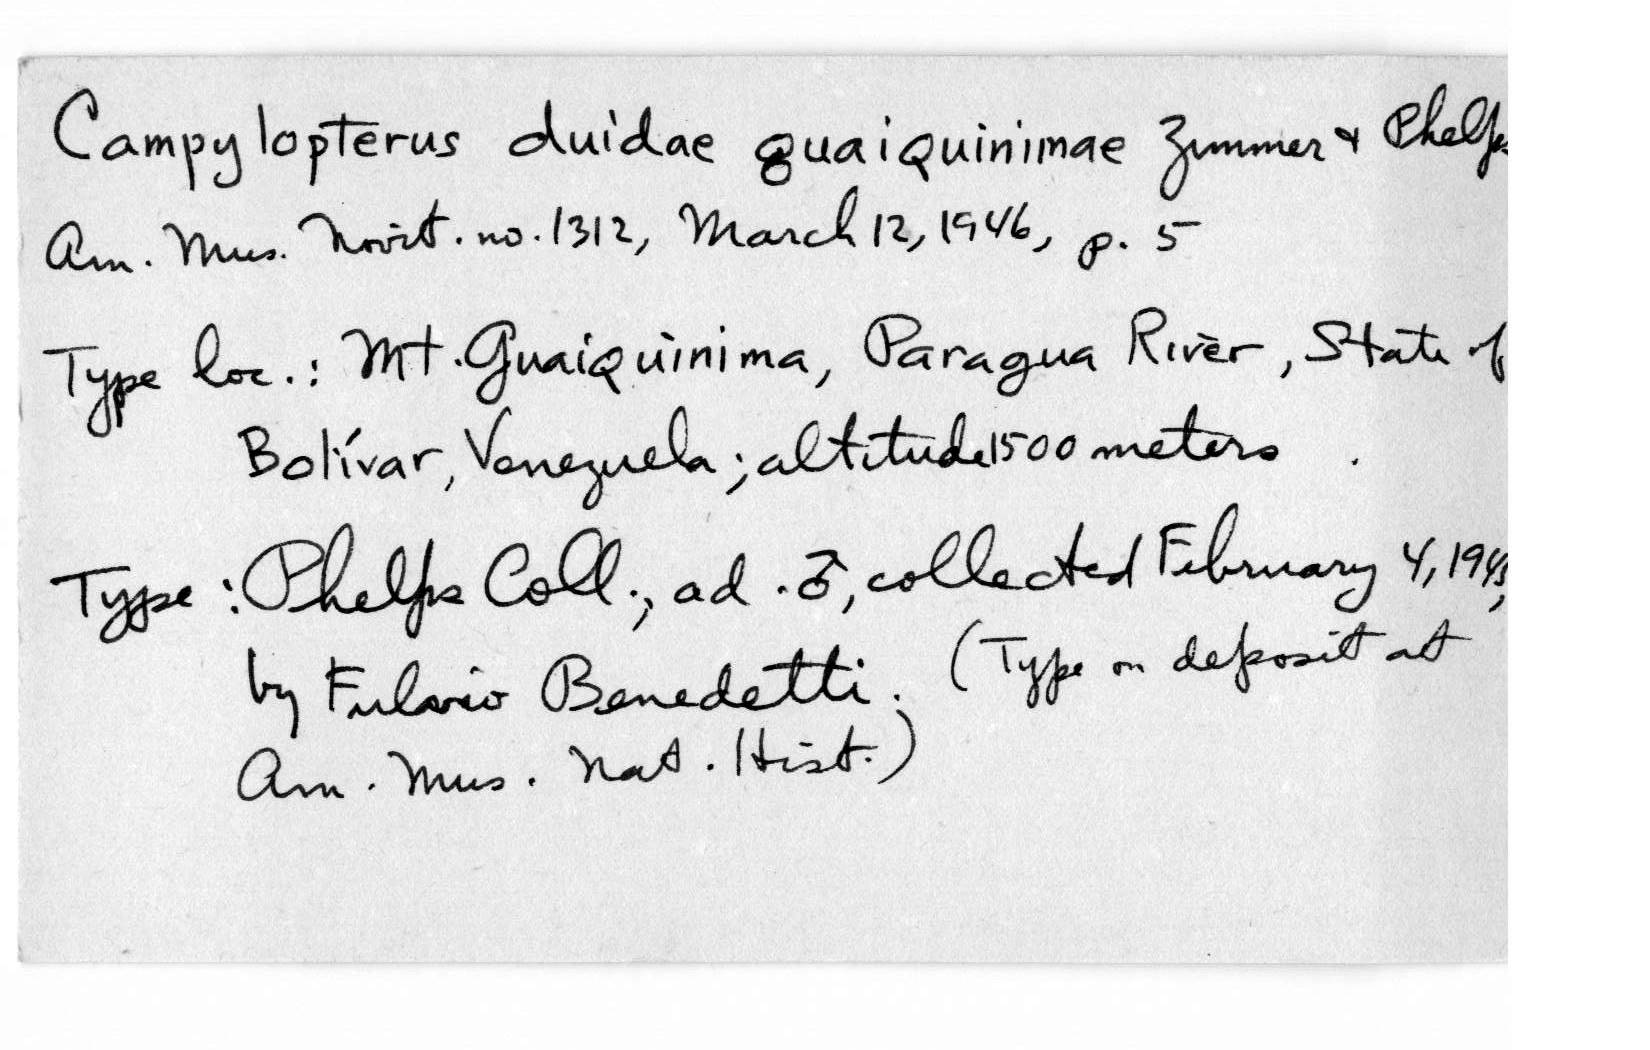 Campylopterus duidae guaiquinimae Zimmer & Phelps
Am. Mus. Novit. no. 1312, March 12, 1946, p. 5
Type loc.: Mt. Guaiquinima, Paragua River, State of
Bolívar, Venezuela; altitude 1500 meters .
Type: Phelps Coll., ad. ♂, collected February 4, 1945,
by Fulvio Benedetti. (Type on deposit at
Am. Mus. Nat. Hist.)